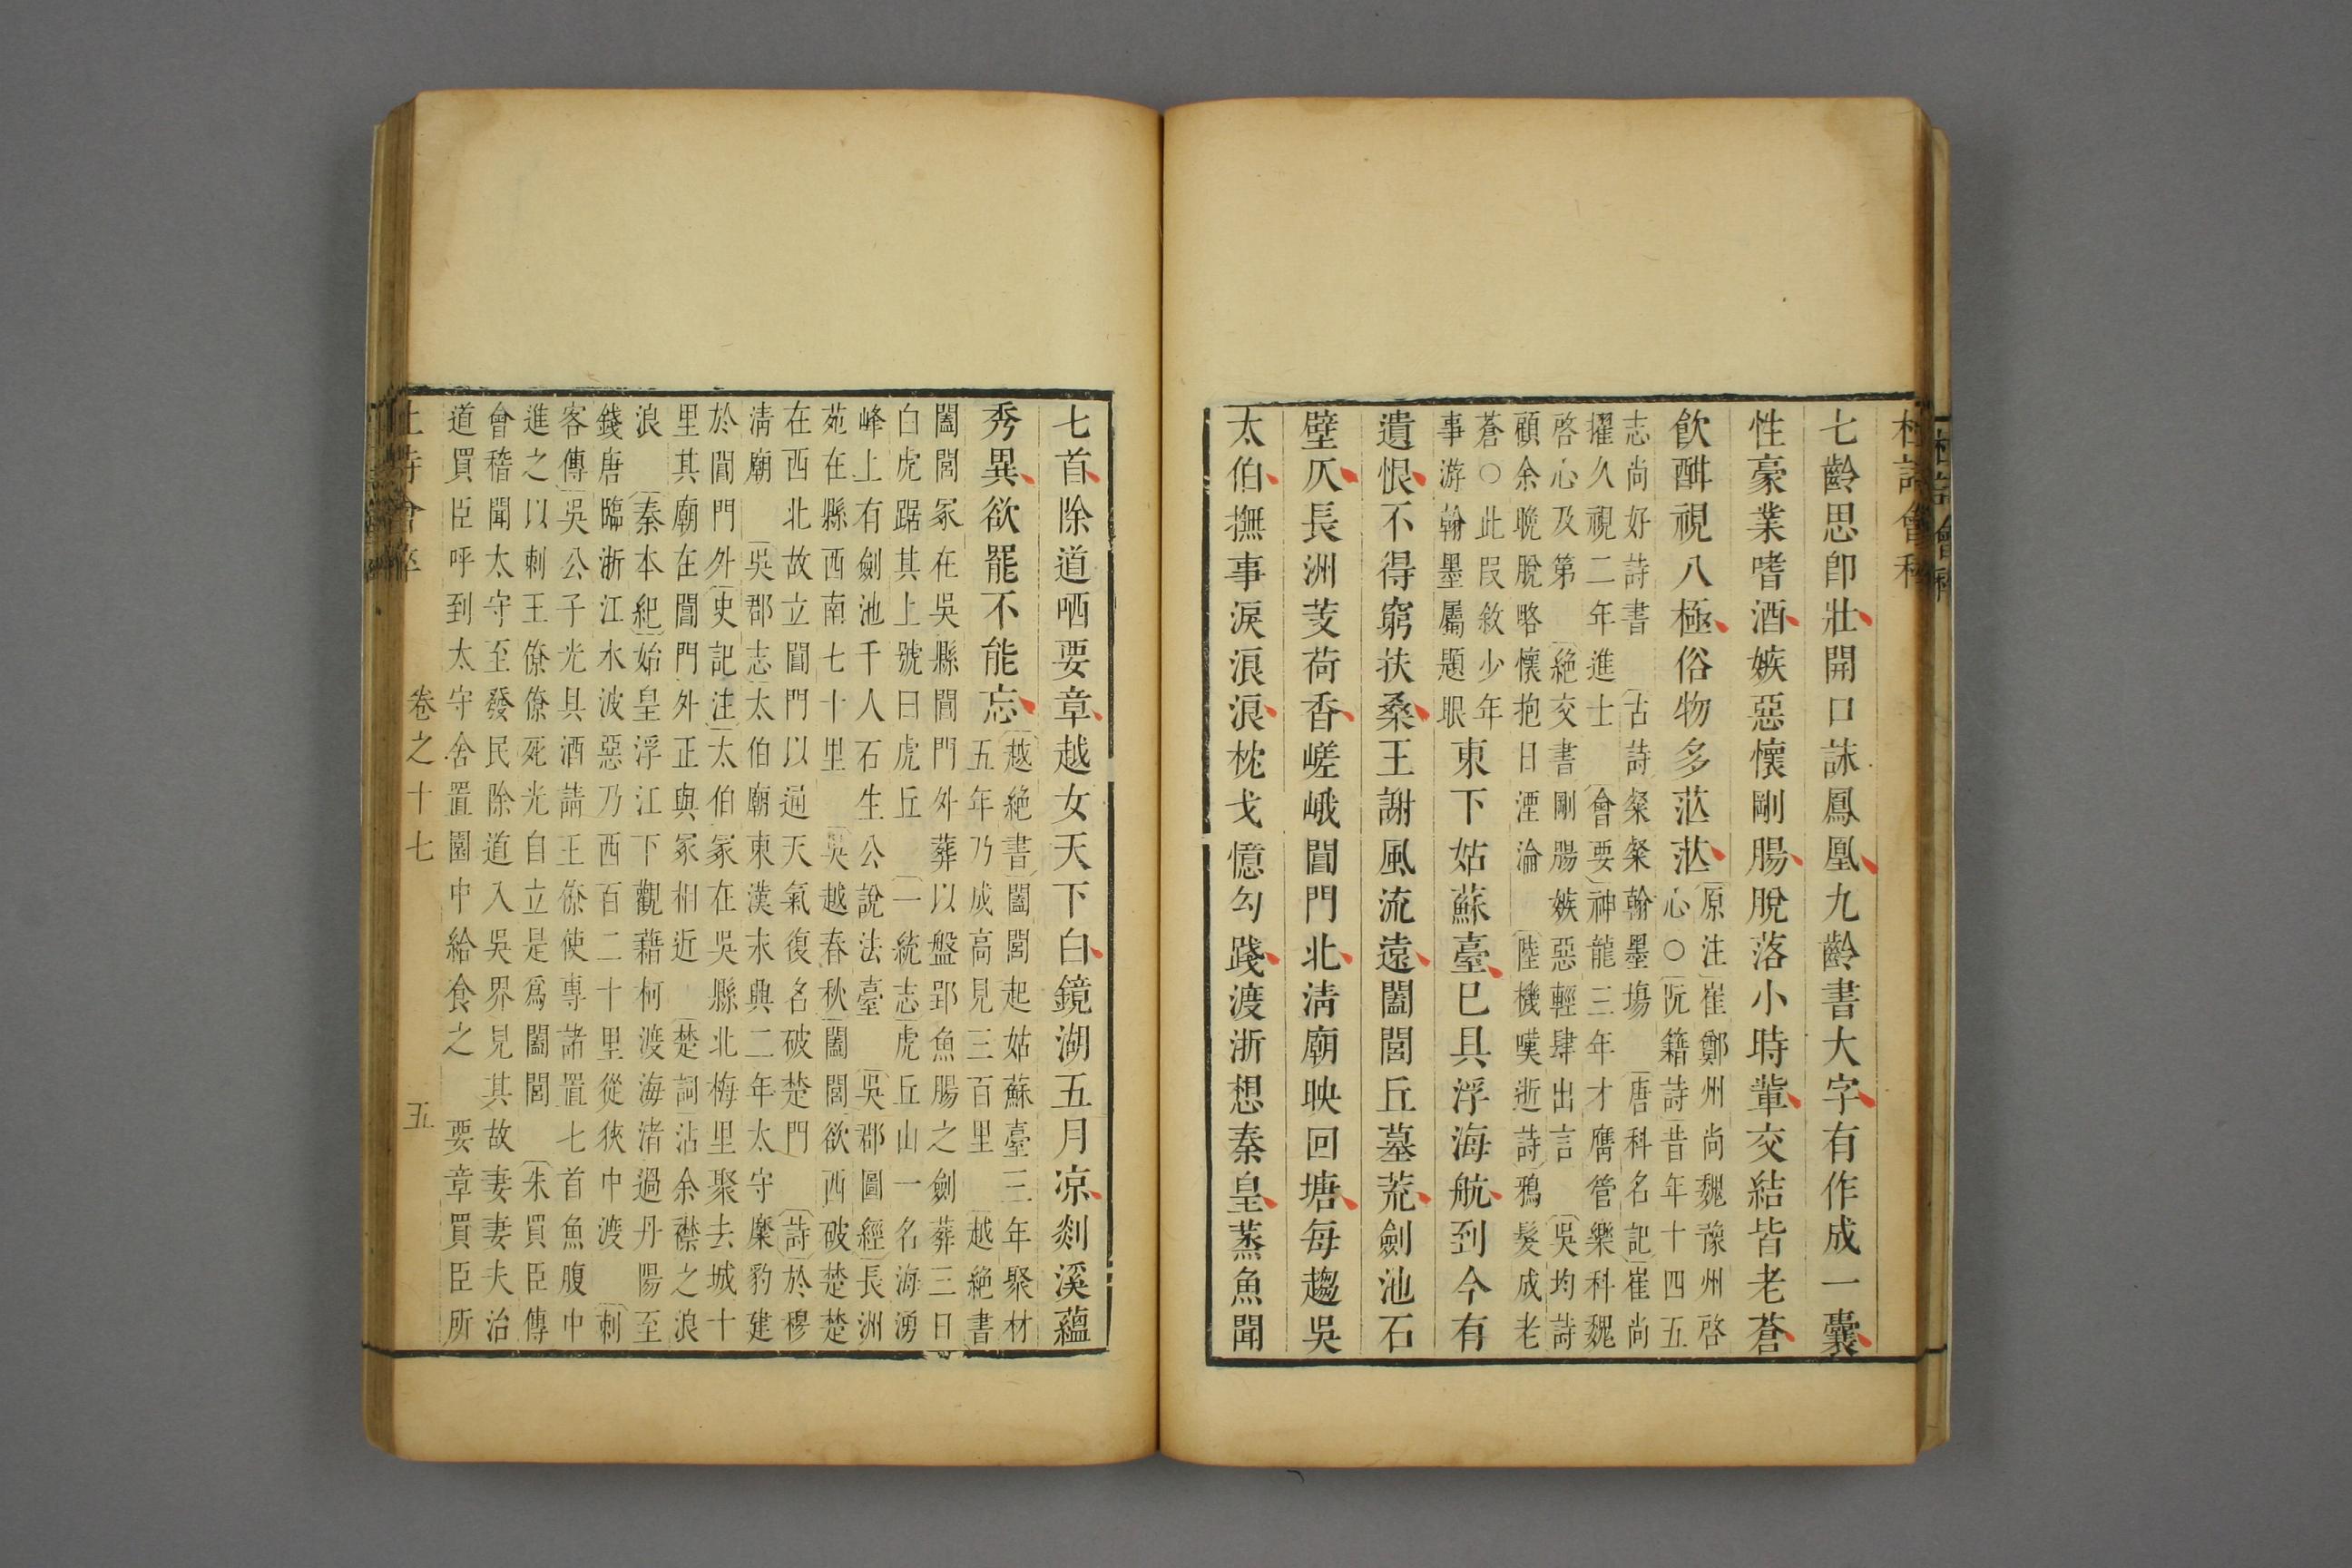 杜詩會稡
七齡思卽壯開口詠鳳凰九齡書大字有作成一囊
性豪業嗜酒嫉惡懷剛腸脫落小時輩交結皆老蒼
飲酣視八極俗物多茫茫原注崔鄭州尚魏豫州啓
心○阮籍詩昔年十四五
志尚好詩書 古詩粲粲翰墨場 唐科名記崔尚
擢久視二年進士 會要神龍三年才膺管樂科魏
啓心及第 絕交書剛腸嫉惡輕肆出言 吳均詩
顧余晩脫略懷抱日湮淪 陸機嘆逝詩鴉髮成老
蒼○此叚敘少年
事游翰墨屬題眼東下姑蘇臺已具浮海航到今有
遺恨不得窮扶桑王謝風流遠闔閭丘墓荒劍池石
壁仄長洲芰荷香嵯峨閶門北淸廟映回塘每趨吳
太伯撫事淚浪浪枕戈憶勾踐渡浙想秦皇蒸魚聞
七首除道哂要章越女天下白鏡湖五月凉剡溪蘊
秀異欲罷不能忘越絕書闔閭起姑蘇臺三年聚材
五年乃成高見三百里 越絕書
闔閭冢在吳縣閶門外葬以盤郢魚腸之劍葬三日
白虎踞其上號曰虎丘 一統志虎丘山一名海湧
峰上有劍池千人石生公說法臺 吳郡圖經長洲
苑在縣西南七十里 吳越春秋闔閭欲西破楚楚
在西北故立閶門以通天氣復名破楚門 詩於穆
淸廟 吳郡志太伯廟東漢末興二年太守糜豹建
於閶門外史記注太伯冢在吳縣北梅里聚去城十
里其廟在閶門外正與冢相近 楚詞沾余襟之浪
浪 秦本紀始皇浮江下觀藉柯渡海渚過丹陽至
錢唐臨浙江水波惡乃西百二十里從狹中渡 刺
客傳吳公子光具酒請王僚使專諸置七首魚腹中
進之以刺王僚僚死光自立是爲闔閭 朱買臣傳
會稽聞太守至發民除道入吳界見其故妻妻夫治
道買臣呼到太守舍置園中給食之 要章買臣所
卷之十七 五